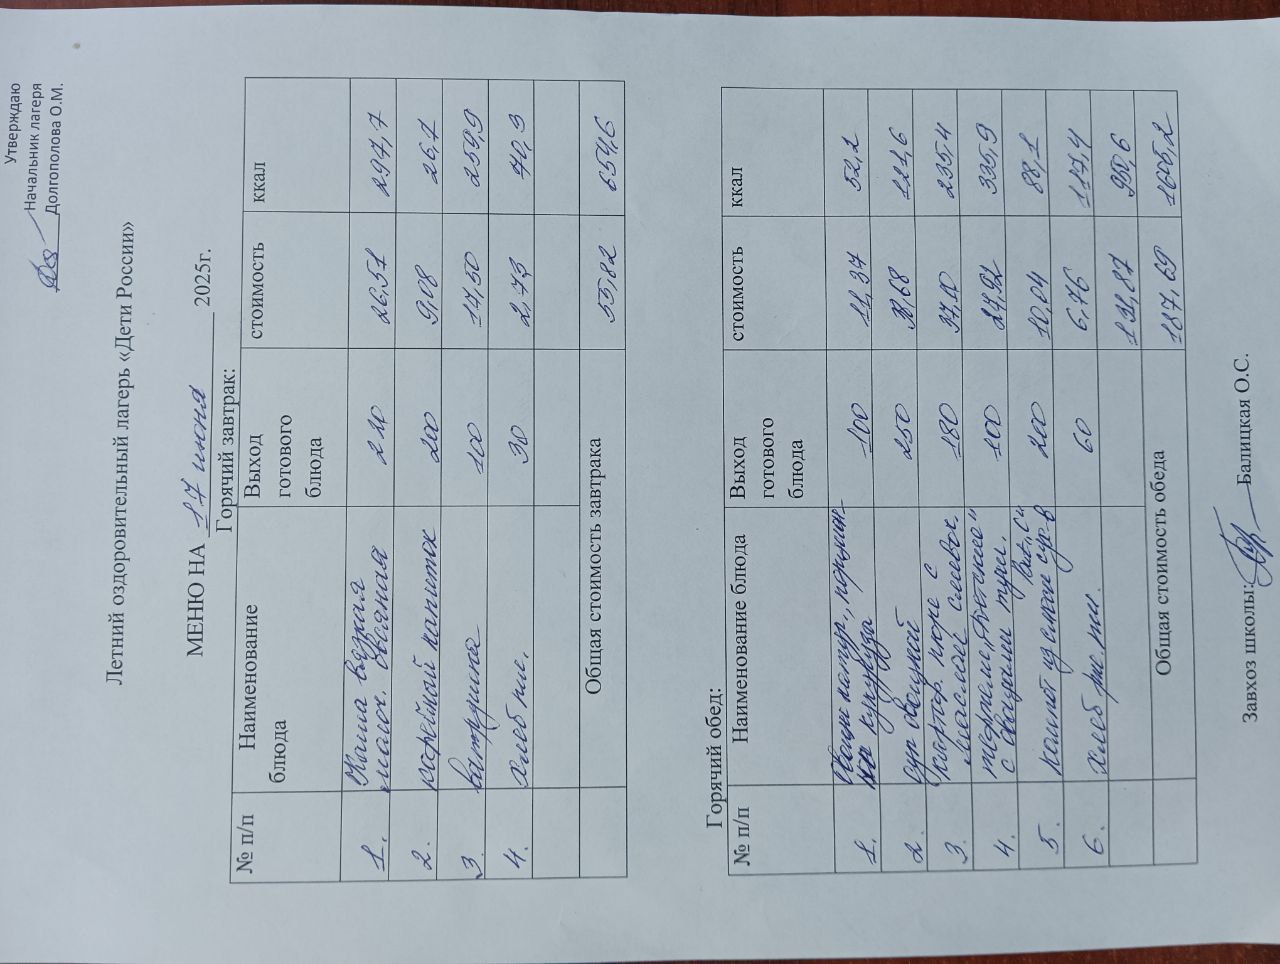 Утверждаю
Начальник лагеря
Долгополова О.М.
Летний оздоровительный лагерь «Дети России»
МЕНЮ НА 17 июня 2025г.
Горячий завтрак:
№ п/п Наименование блюда Выход готового блюда стоимость ккал
1. Каша вязкая молоч. овсяная 210 26,51 297,7
2. кофейный напиток 200 9,08 26,7
3. ватрушка 100 17,50 259,9
4. хлеб пш. 30 2,73 70,3
Общая стоимость завтрака 55,82 654,6
Горячий обед:
№ п/п Наименование блюда Выход готового блюда стоимость ккал
1. Овощи натур. порцион. кукуруза 100 11,37 52,2
2. суп овощной 250 111,6
3. картоф. пюре с маслом сливоч. 180 235,4
4. тефтели "Детские" с овощами туш. 100 335,9
5. компот из смеси сух-в Вит "С" 200 10,04 88,1
6. хлеб рж. пш. 60 6,76 117,4
131,87 950,6
Общая стоимость обеда 187,69 1605,2
Завхоз школы: Балицкая О.С.